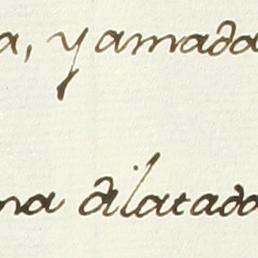 a, y amada
na dilatada